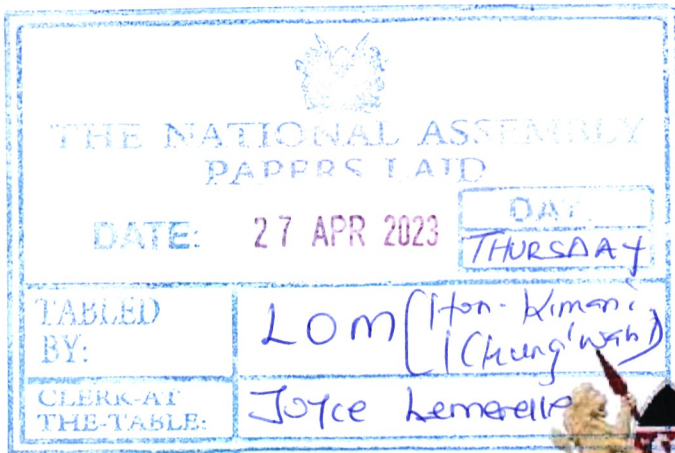 THE NATIONAL ASSEMBLY
PAPERS LAID
DATE: 27 APR 2023
DAY.
THURSDAY
TABLED BY:
LOM (Hon. Kimani
Ichung'wah)
CLERK-AT
THE-TABLE:
Joyce Lemerelle